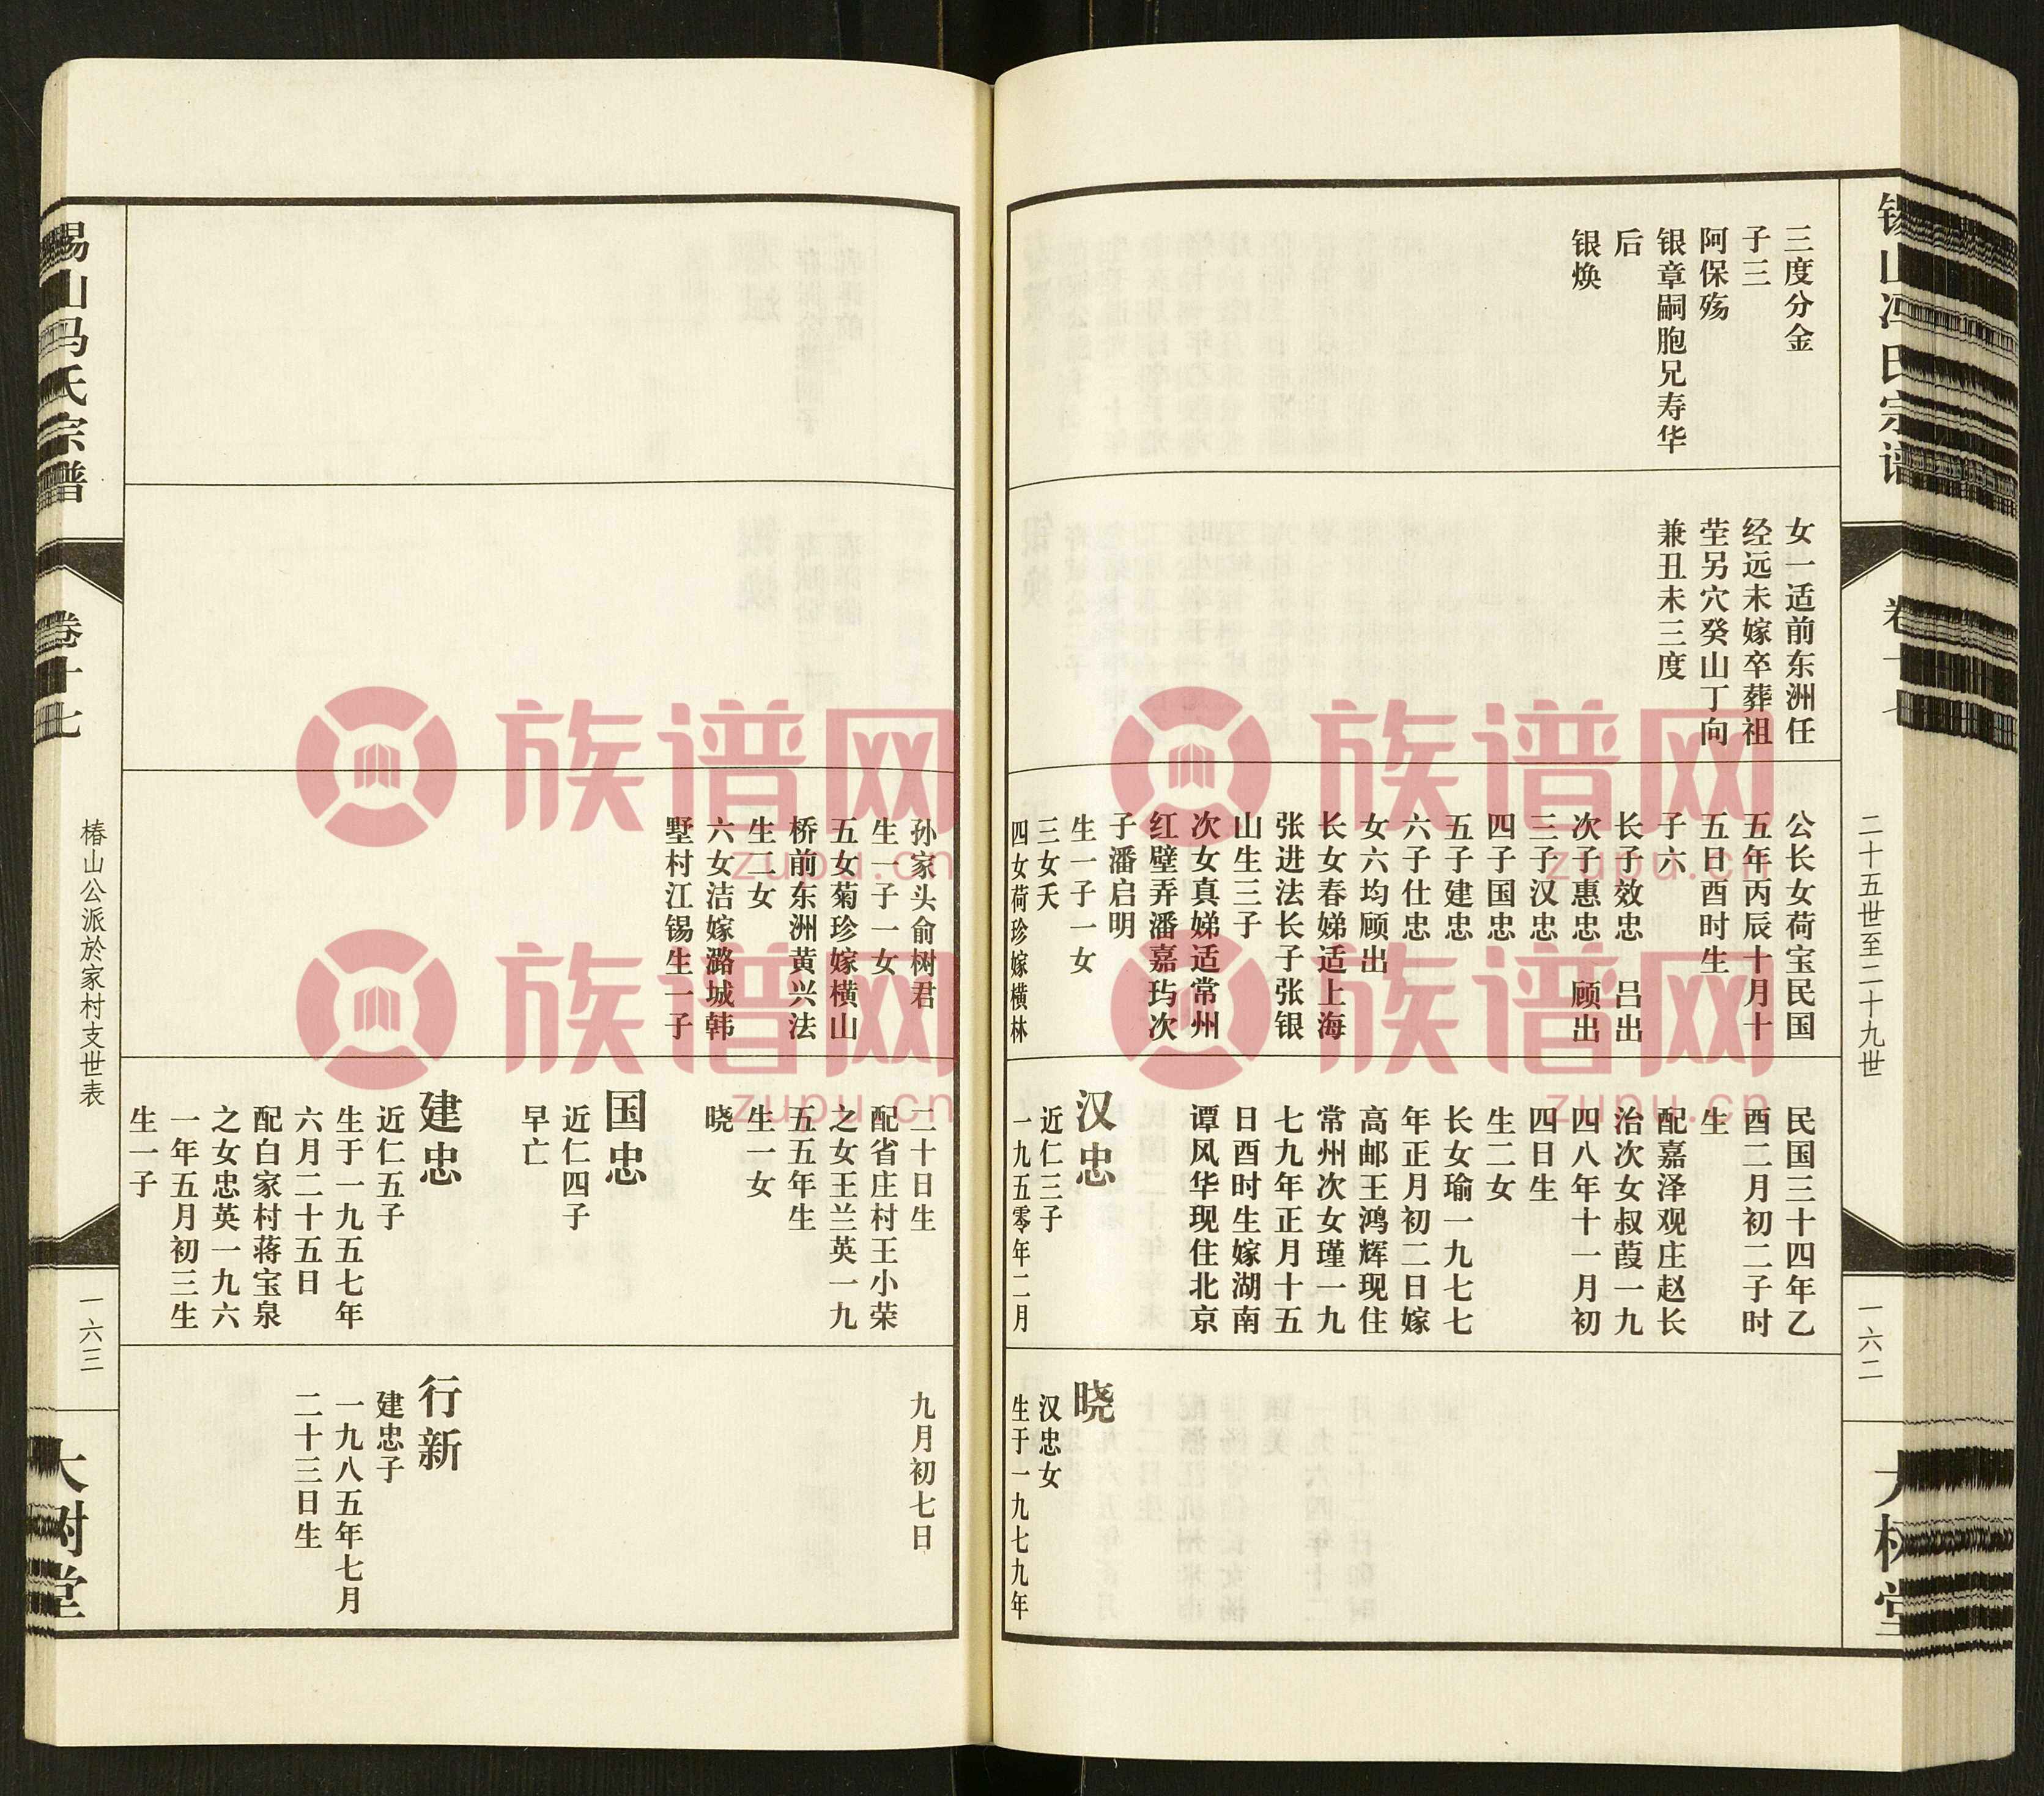 锡山冯氏宗谱
卷十七
二十五世至二十九世
一六二
大树堂
三度分金
子三
阿保殇
银章嗣胞兄寿华
后
银焕
女一适前东洲任
经远未嫁卒葬祖
茔另穴癸山丁向
兼丑未三度
公长女荷宝民国
五年丙辰十月十
五日酉时生
子六
长子效忠 吕出
次子惠忠 顾出
三子汉忠
四子国忠
五子建忠
六子仕忠
女六均顾出
长女春娣适上海
张进法长子张银
山生三子
次女真娣适常州
红壁弄潘嘉玙次
子潘启明
生一子一女
三女夭
四女荷珍嫁横林
民国三十四年乙
酉二月初二子时
生
配嘉泽观庄赵长
治次女叔葭一九
四八年十一月初
四日生
生二女
长女瑜一九七七
年正月初二日嫁
高邮王鸿辉现住
常州次女瑾一九
七九年正月十五
日酉时生嫁湖南
谭风华现住北京
汉忠
近仁三子
一九五零年二月
晓
汉忠女
生于一九七九年
孙家头俞树君
生一子一女
五女菊珍嫁横山
桥前东洲黄兴法
生二女
六女洁嫁潞城韩
墅村江锡生一子
二十日生
配省庄村王小荣
之女王兰英一九
五五年生
生一女
晓
国忠
近仁四子
早亡
建忠
近仁五子
生于一九五七年
六月二十五日
配白家村蒋宝泉
之女忠英一九六
一年五月初三生
生一子
九月初七日
行新
建忠子
一九八五年七月
二十三日生
锡山冯氏宗谱
卷十七
椿山公派於家村支世表
一六三
大树堂
族谱网
zupu.cn
族谱网
zupu.cn
族谱网
zupu.cn
族谱网
zupu.cn